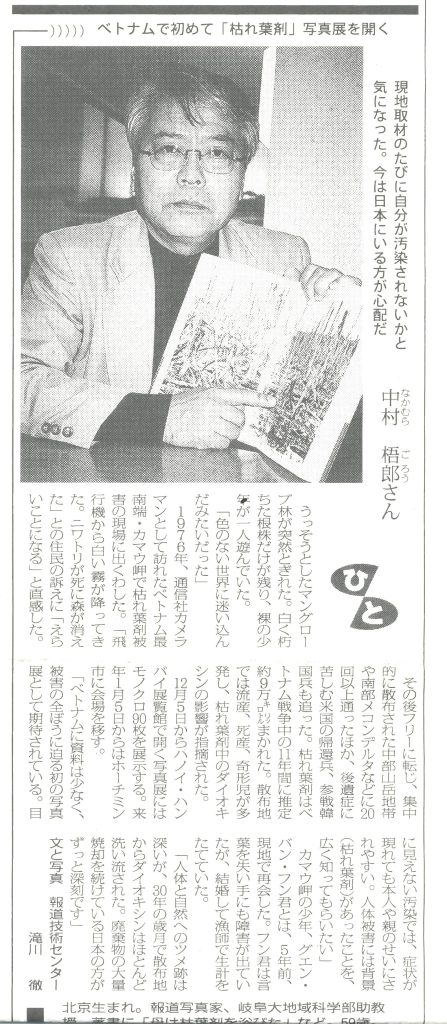 ベトナムで初めて「枯れ葉剤」写真展を開く
現地取材のたびに自分が汚染されないかと
気になった。今は日本にいる方が心配だ
中村 梧郎さん
なかむら ごろう
ひと
うっそうとしたマングロー
ブ林が突然とぎれた。白く朽
ちた根株だけが残り、裸の少
年が一人遊んでいた。
「色のない世界に迷い込ん
だみたいだった」
1976年、通信社カメラ
マンとして訪れたベトナム最
南端・カマウ岬で枯れ葉剤被
害の現場に出くわした。「飛
行機から白い霧が降ってき
た。ニワトリが死に森が消え
た」との住民の訴えに「えら
いことになる」と直感した。
その後フリーに転じ、集中
的に散布された中部山岳地帯
や南部メコンデルタなどに20
回以上通ったほか、後遺症に
苦しむ米国の帰還兵、参戦韓
国兵も追った。枯れ葉剤はベ
トナム戦争中の11年間に推定
約9万㌔㍑まかれた。散布地
では流産、死産、奇形児が多
発し、枯れ葉剤中のダイオキ
シンの影響が指摘された。
12月5日からハノイ・ハン
バイ展覧館で開く写真展には
モノクロ90枚を展示する。来
年1月5日からはホーチミン
市に会場を移す。
「ベトナムに資料は少なく、
被害の全ぼうに迫る初の写真
展として期待されている。目
に見えない汚染では、症状が
現れても本人や親のせいにさ
れやすい。人体被害には背景
（枯れ葉剤）があったことを、
広く知ってもらいたい」
カマウ岬の少年、グエン・
バン・フン君とは、5年前、
現地で再会した。フン君は言
葉を失い手にも障害が出てい
たが、結婚して漁師で生計を
たてていた。
「人体と自然へのツメ跡は
深いが、30年の歳月で散布地
からダイオキシンはほとんど
洗い流された。廃棄物の大量
焼却を続けている日本の方が
ずっと深刻です」
文と写真 報道技術センター
滝川 徹
北京生まれ。報道写真家、岐阜大地域科学部助教
授。著書に「母は枯葉剤を浴びた」など。59歳